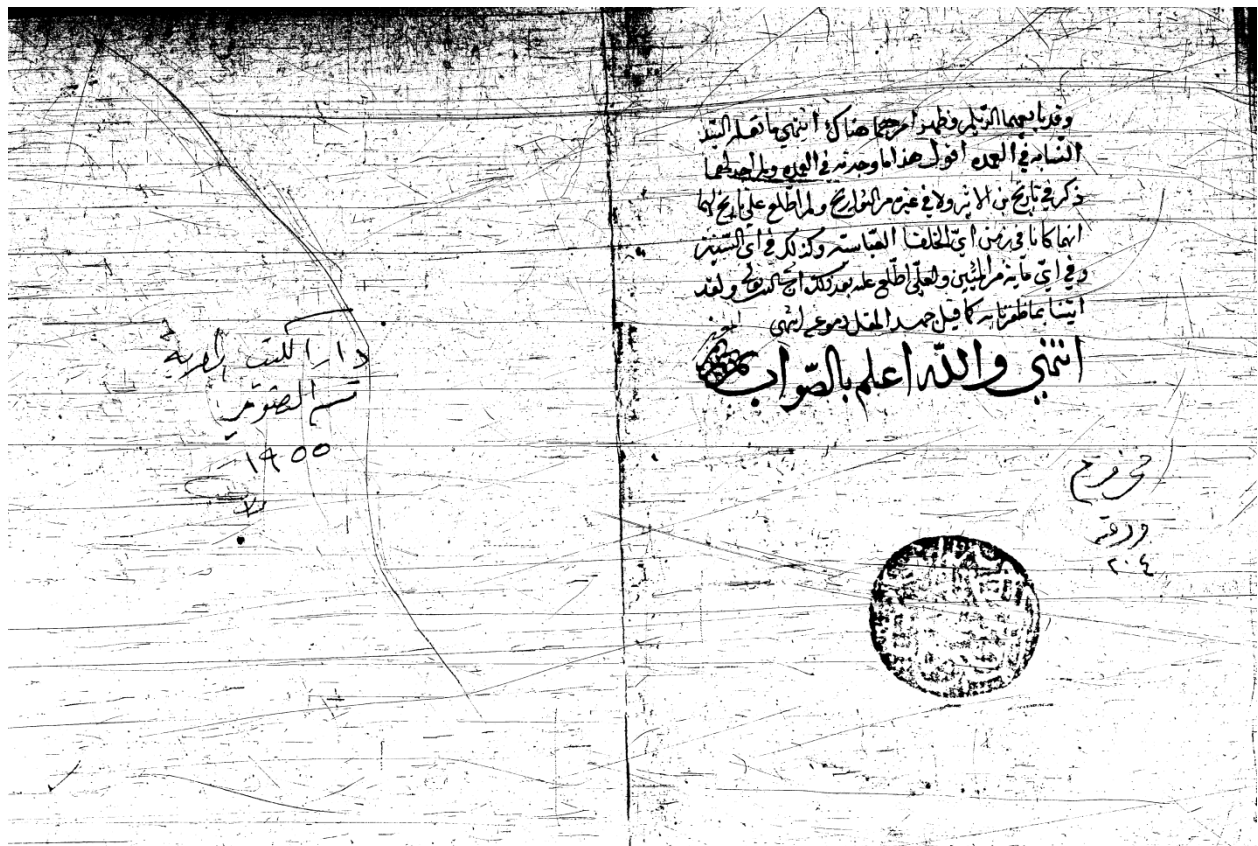 وقد بايعهما الديلم وظهر امرهما هناك انتهى ما نقله السيد
النسابه في العمده اقول هذا ما وجدته في العمده ولم اجد لهما
ذكر في تاريخ بن الاثير ولا في غيره من التواريخ ولم اطلع على تاريخ لهما
انهما كانا في زمن اي الخلفا العباسيه وكذلك في اي السنين
وفي اي مايه من المئين ولعلي اطلع عليه بعد ذلك ولقد
اتينا بما ظفرنا به كما قيل جهد المقل دموعه انتهى
انتهى والله اعلم بالصواب
ورقه
٢٠٤
دار الكتب المصرية
قسم التصوير
١٩٥٥